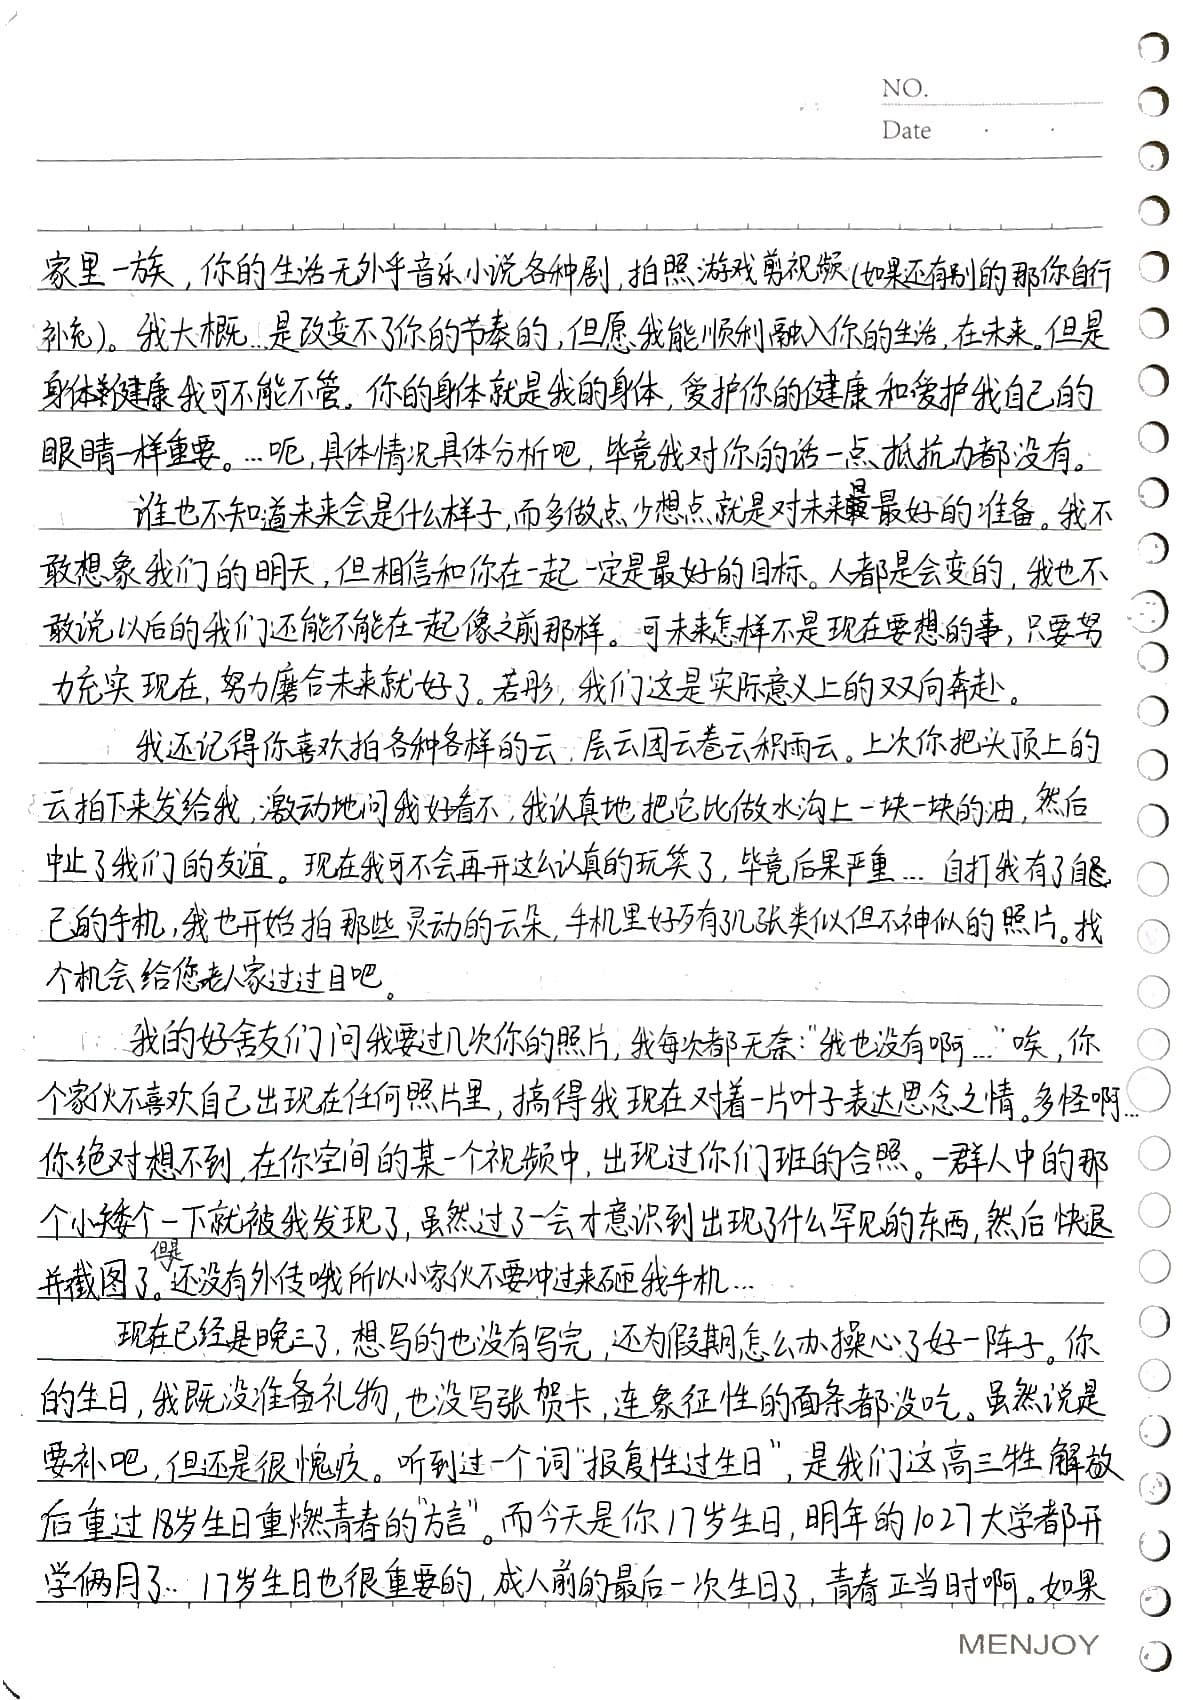 NO.
Date
家里一族，你的生活无外乎音乐小说各种剧，拍照游戏剪视频（如果还有别的那你自行
补充）。我大概…是改变不了你的节奏的，但愿我能顺利融入你的生活，在未来。但是
身体健康我可不能不管。你的身体就是我的身体，爱护你的健康和爱护我自己的
眼睛一样重要。…呃，具体情况具体分析吧，毕竟我对你的话一点抵抗力都没有。
谁也不知道未来会是什么样子，而多做点少想点就是对未来最好的准备。我不
敢想象我们的明天，但相信和你在一起一定是最好的目标。人都是会变的，我也不
敢说以后的我们还能不能在一起像之前那样。可未来怎样不是现在要想的事，只要努
力充实现在，努力磨合未来就好了。若彤，我们这是实际意义上的双向奔赴。
我还记得你喜欢拍各种各样的云，层云团云卷云积雨云。上次你把头顶上的
云拍下来发给我，激动地问我好看不，我认真地把它比做水沟上一块一块的油，然后
中止了我们的友谊。现在我可不会再开这么认真的玩笑了，毕竟后果严重…自打我有了自
己的手机，我也开始拍那些灵动的云朵，手机里好歹有了几张类似但不神似的照片。找
个机会给您老人家过过目吧。
我的好舍友们问我要过几次你的照片，我每次都无奈：“我也没有啊…”唉，你
个家伙不喜欢自己出现在任何照片里，搞得我现在对着一片叶子表达思念之情。多怪啊…
你绝对想不到，在你空间的某一个视频中，出现过你们班的合照。一群人中的那
个小矮个一下就被我发现了，虽然过了一会才意识到出现了什么罕见的东西，然后快退
并截图了。但是还没有外传哦所以小家伙不要冲过来砸我手机…
现在已经是晚三了，想写的也没有写完，还为假期怎么办操心了好一阵子。你
的生日，我既没准备礼物，也没写张贺卡，连象征性的面条都没吃。虽然说是
要补吧，但还是很愧疚。听到过一个词“报复性过生日”，是我们这高三牲解放
后重过18岁生日重燃青春的“方言”。而今天是你17岁生日，明年的1027大学都开
学俩月了…17岁生日也很重要的，成人前的最后一次生日了，青春正当时啊。如果
MENJOY